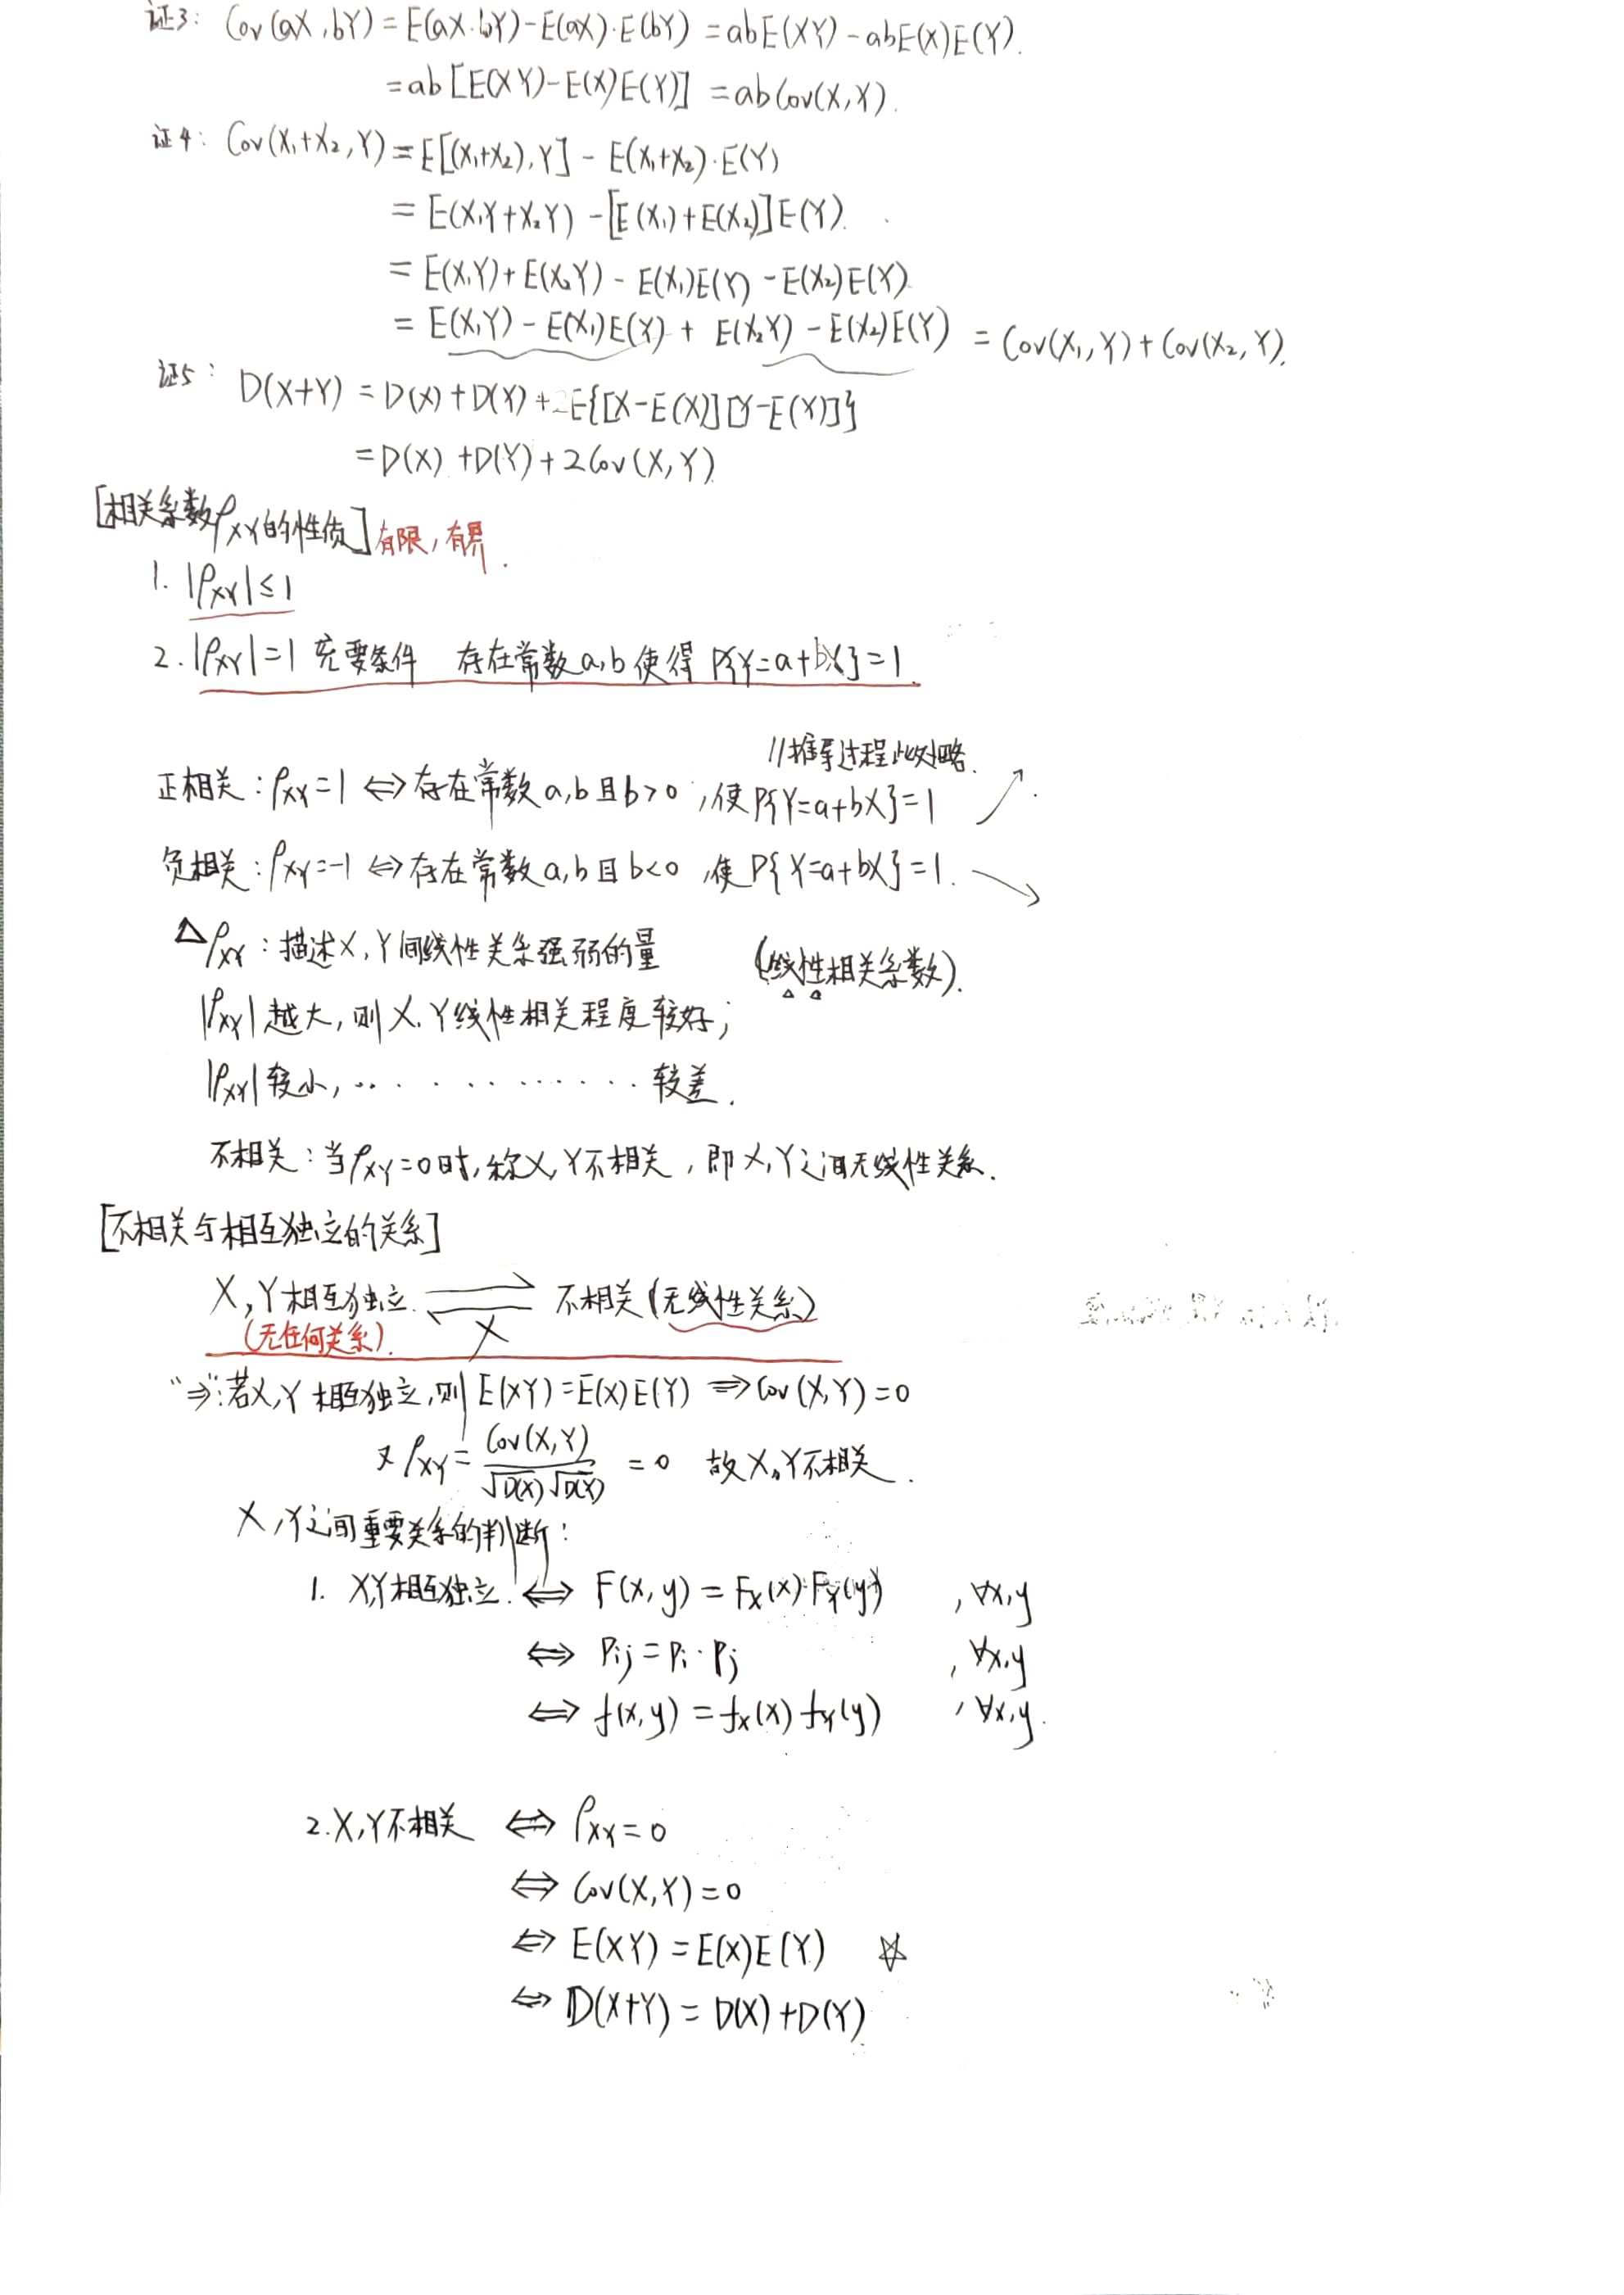 证3: Cov(aX,bY)=E(aX·bY)-E(aX)·E(bY)=abE(XY)-abE(X)E(Y).
=ab[E(XY)-E(X)E(Y)]=abCov(X,Y).
证4: Cov(X₁+X₂,Y)=E[(X₁+X₂),Y]-E(X₁+X₂)·E(Y)
=E(X₁Y+X₂Y)-[E(X₁)+E(X₂)]E(Y).
=E(X₁Y)+E(X₂Y)-E(X₁)E(Y)-E(X₂)E(Y).
=E(X₁Y)-E(X₁)E(Y)+E(X₂Y)-E(X₂)E(Y)=Cov(X₁,Y)+Cov(X₂,Y).
证5: D(X+Y)=D(X)+D(Y)+2E{[X-E(X)][Y-E(Y)]}
=D(X)+D(Y)+2Cov(X,Y)
[相关系数ρXY的性质] 有限,有界.
1. |ρXY|≤1
2. |ρXY|=1 充要条件 存在常数a,b使得P{Y=a+bX}=1.
//推导过程此处略.
正相关:ρXY=1⇔存在常数a,b且b>0,使P{Y=a+bX}=1 ↗
负相关:ρXY=-1⇔存在常数a,b且b<0,使P{Y=a+bX}=1. ↘
△ρXY:描述X,Y间线性关系强弱的量 (线性相关系数).
|ρXY|越大,则X,Y线性相关程度较好;
|ρXY|较小,············较差.
不相关:当ρXY=0时,称X,Y不相关,即X,Y之间无线性关系.
[不相关与相互独立的关系]
X,Y相互独立. ⇌ 不相关(无线性关系)
(无任何关系). X
"⇒":若X,Y相互独立,则E(XY)=E(X)E(Y)⇒Cov(X,Y)=0
又ρXY=Cov(X,Y)/√D(X)√D(Y)=0 故X,Y不相关.
X,Y之间重要关系的判断:
1. X,Y相互独立.⇔F(x,y)=FX(x)·FY(y) ,∀x,y
⇔Pij=Pi·Pj ,∀x,y
⇔f(x,y)=fX(x)fY(y) ,∀x,y.
2.X,Y不相关⇔ρXY=0
⇔Cov(X,Y)=0
⇔E(XY)=E(X)E(Y) ☆
⇔D(X+Y)=D(X)+D(Y)